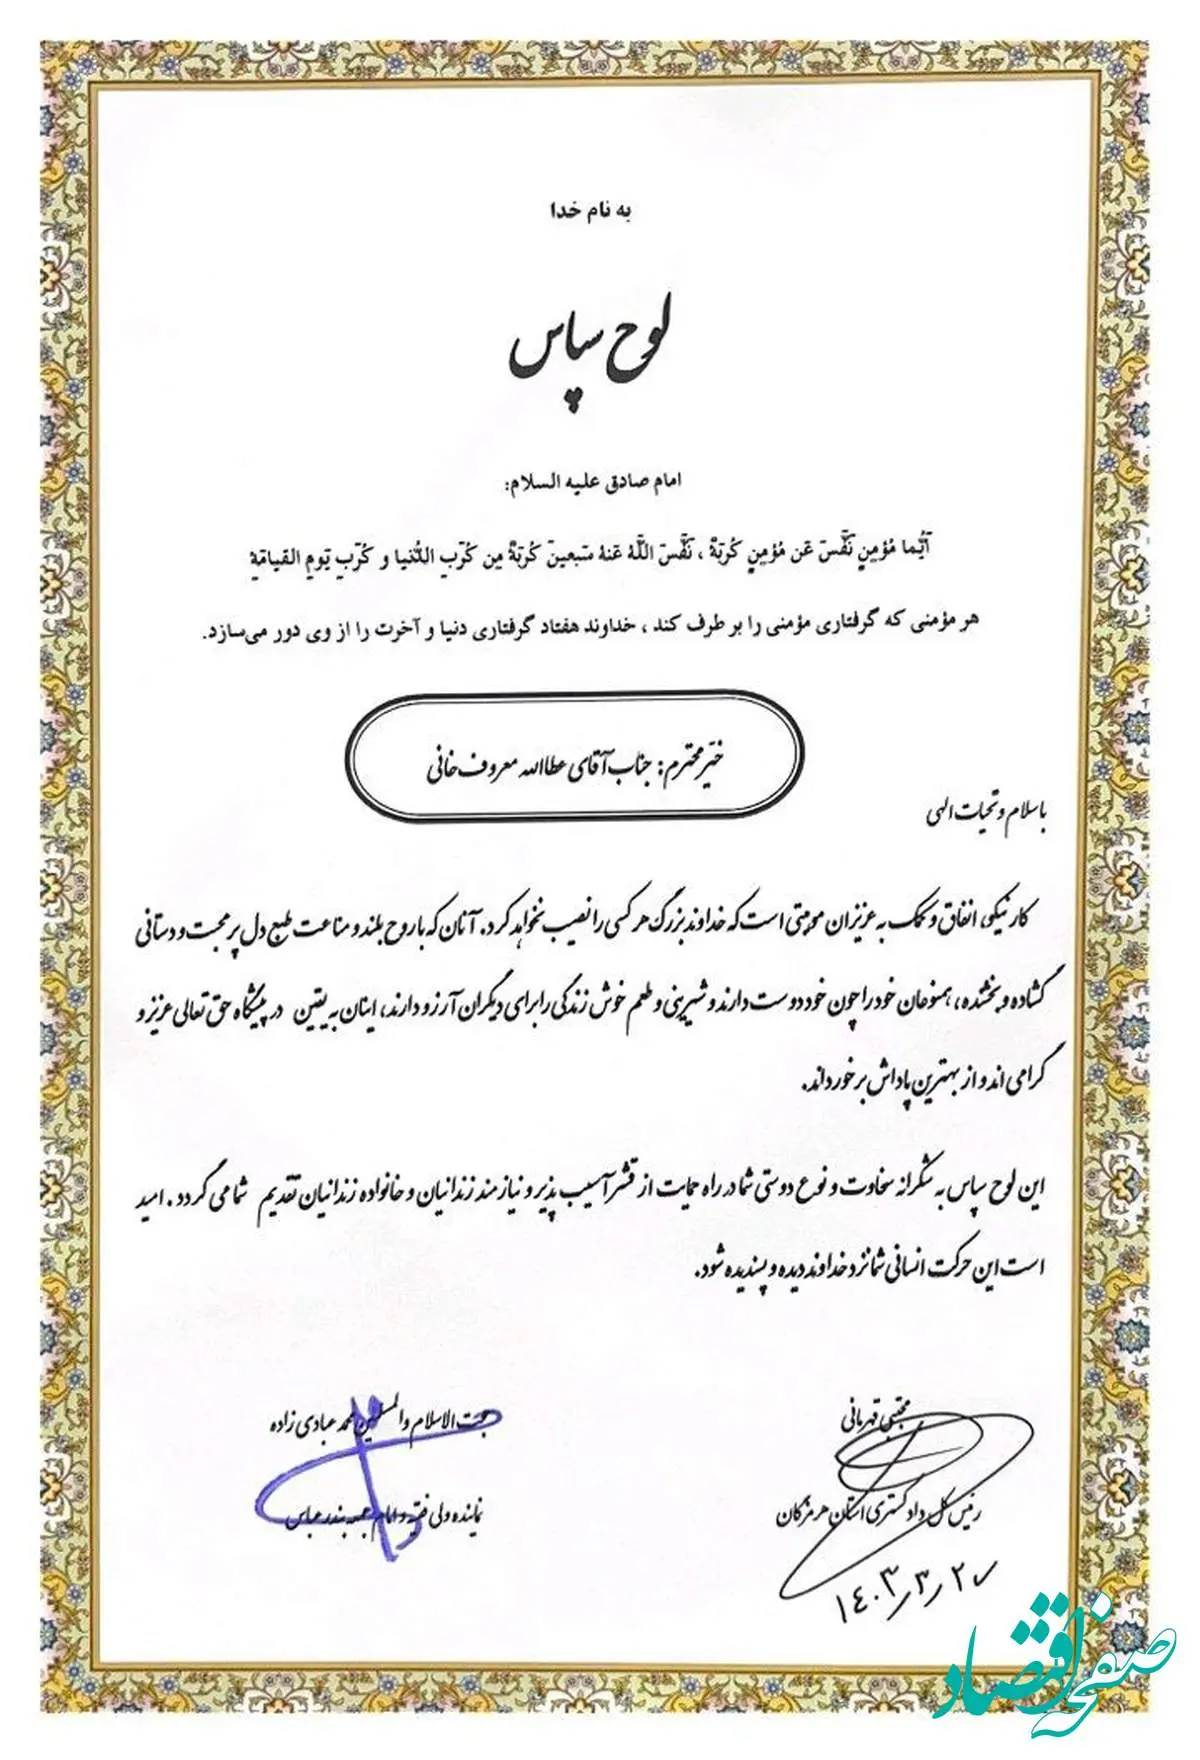 به نام خدا
لوح سپاس
امام صادق علیه السلام:
أیُّما مُؤمِنٍ نَفَّسَ عَن مُؤمِنٍ کُربَةً ، نَفَّسَ اللَّهُ عَنهُ سَبعینَ کُربَةً مِن کُرَبِ الدُّنیا و کُرَبِ یَومِ القیامَةِ
هر مؤمنی که گرفتاری مؤمنی را بر طرف کند ، خداوند هفتاد گرفتاری دنیا و آخرت را از وی دور می‌سازد.
خیّر محترم: جناب آقای عطاالله معروف خانی
باسلام و تحیات الهی
کار نیکو، انفاق و کمک به عزیزان موهبتی است که خداوند بزرگ هر کسی را نصیب نخواهد کرد. آنان که با روح بلند و مناعت طبع دل پر محبت و دستانی
گشاده و بخشنده، همنوعان خود را چون خود دوست دارند و شیرینی و طعم خوش زندگی را برای دیگران آرزو دارند، اینان به یقین در پیشگاه حق تعالی عزیز و
گرامی اند و از بهترین پاداش برخورداند.
این لوح سپاس به شکرانه سخاوت و نوع دوستی شما در راه حمایت از قشر آسیب پذیر و نیازمند زندانیان و خانواده زندانیان تقدیم شما می گردد. امید
است این حرکت انسانی شما نزد خداوند دیده و پسندیده شود.
مجتبی قهرمانی
رئیس کل دادگستری استان هرمزگان
۱۴۰۳/۳/۲۷
حجت الاسلام والمسلمین محمد عبادی زاده
نماینده ولی فقیه و امام جمعه بندرعباس
صفحه اقتصاد